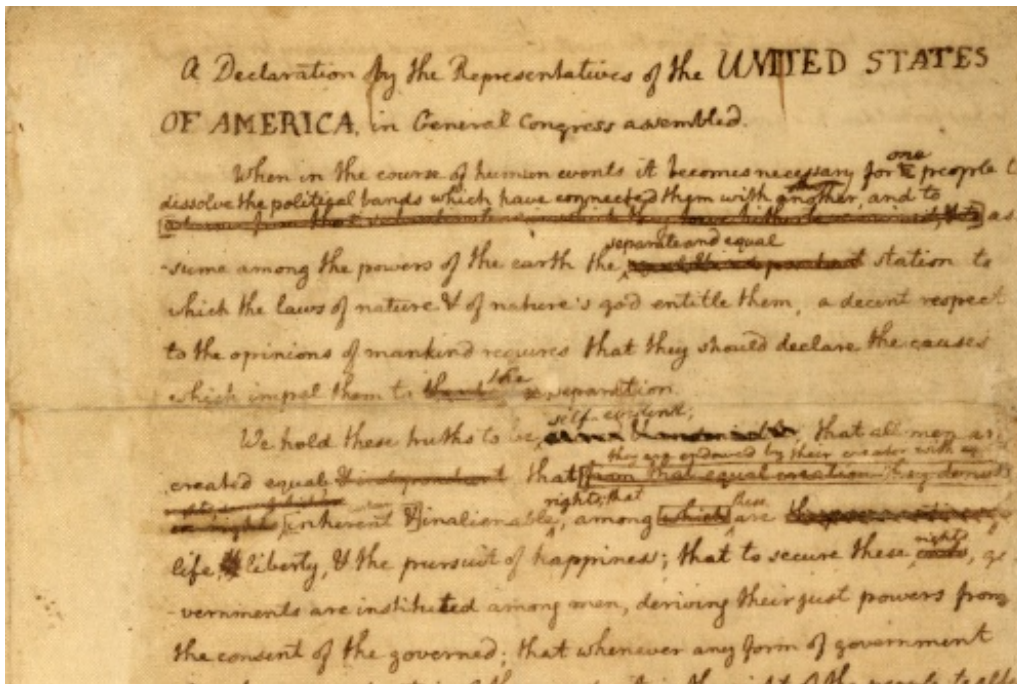 A Declaration by the Representatives of the UNITED STATES
OF AMERICA, in General Congress assembled.
When in the course of human events it becomes necessary for one people
dissolve the political bands which have connected them with another, and to
as
separate and equal
-sume among the powers of the earth the station to
which the laws of nature & of nature's god entitle them, a decent respect
to the opinions of mankind requires that they should declare the causes
which impel them to the separation.
self-evident;
We hold these truths to be that all men
they are endowed by their creator with
created equal & independent that from that equal creation they derive
rights; that these
in rights inherent & inalienable, among which are
life, & liberty, & the pursuit of happiness; that to secure these rights, go
-vernments are instituted among men, deriving their just powers from
the consent of the governed; that whenever any form of government